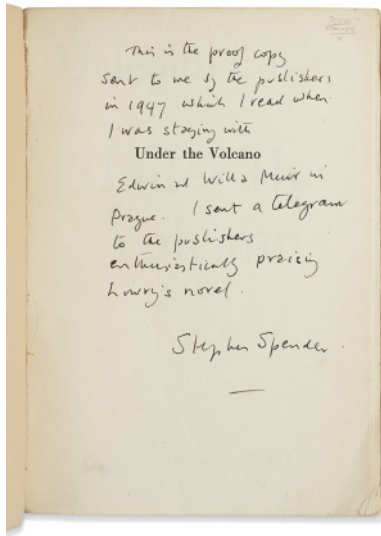 This is the proof copy
sent to me by the publishers
in 1947 which I read when
I was staying with
Under the Volcano
Edwin and Willa Muir in
Prague. I sent a telegram
to the publishers
enthusiastically praising
Lowry's novel.
Stephen Spender.